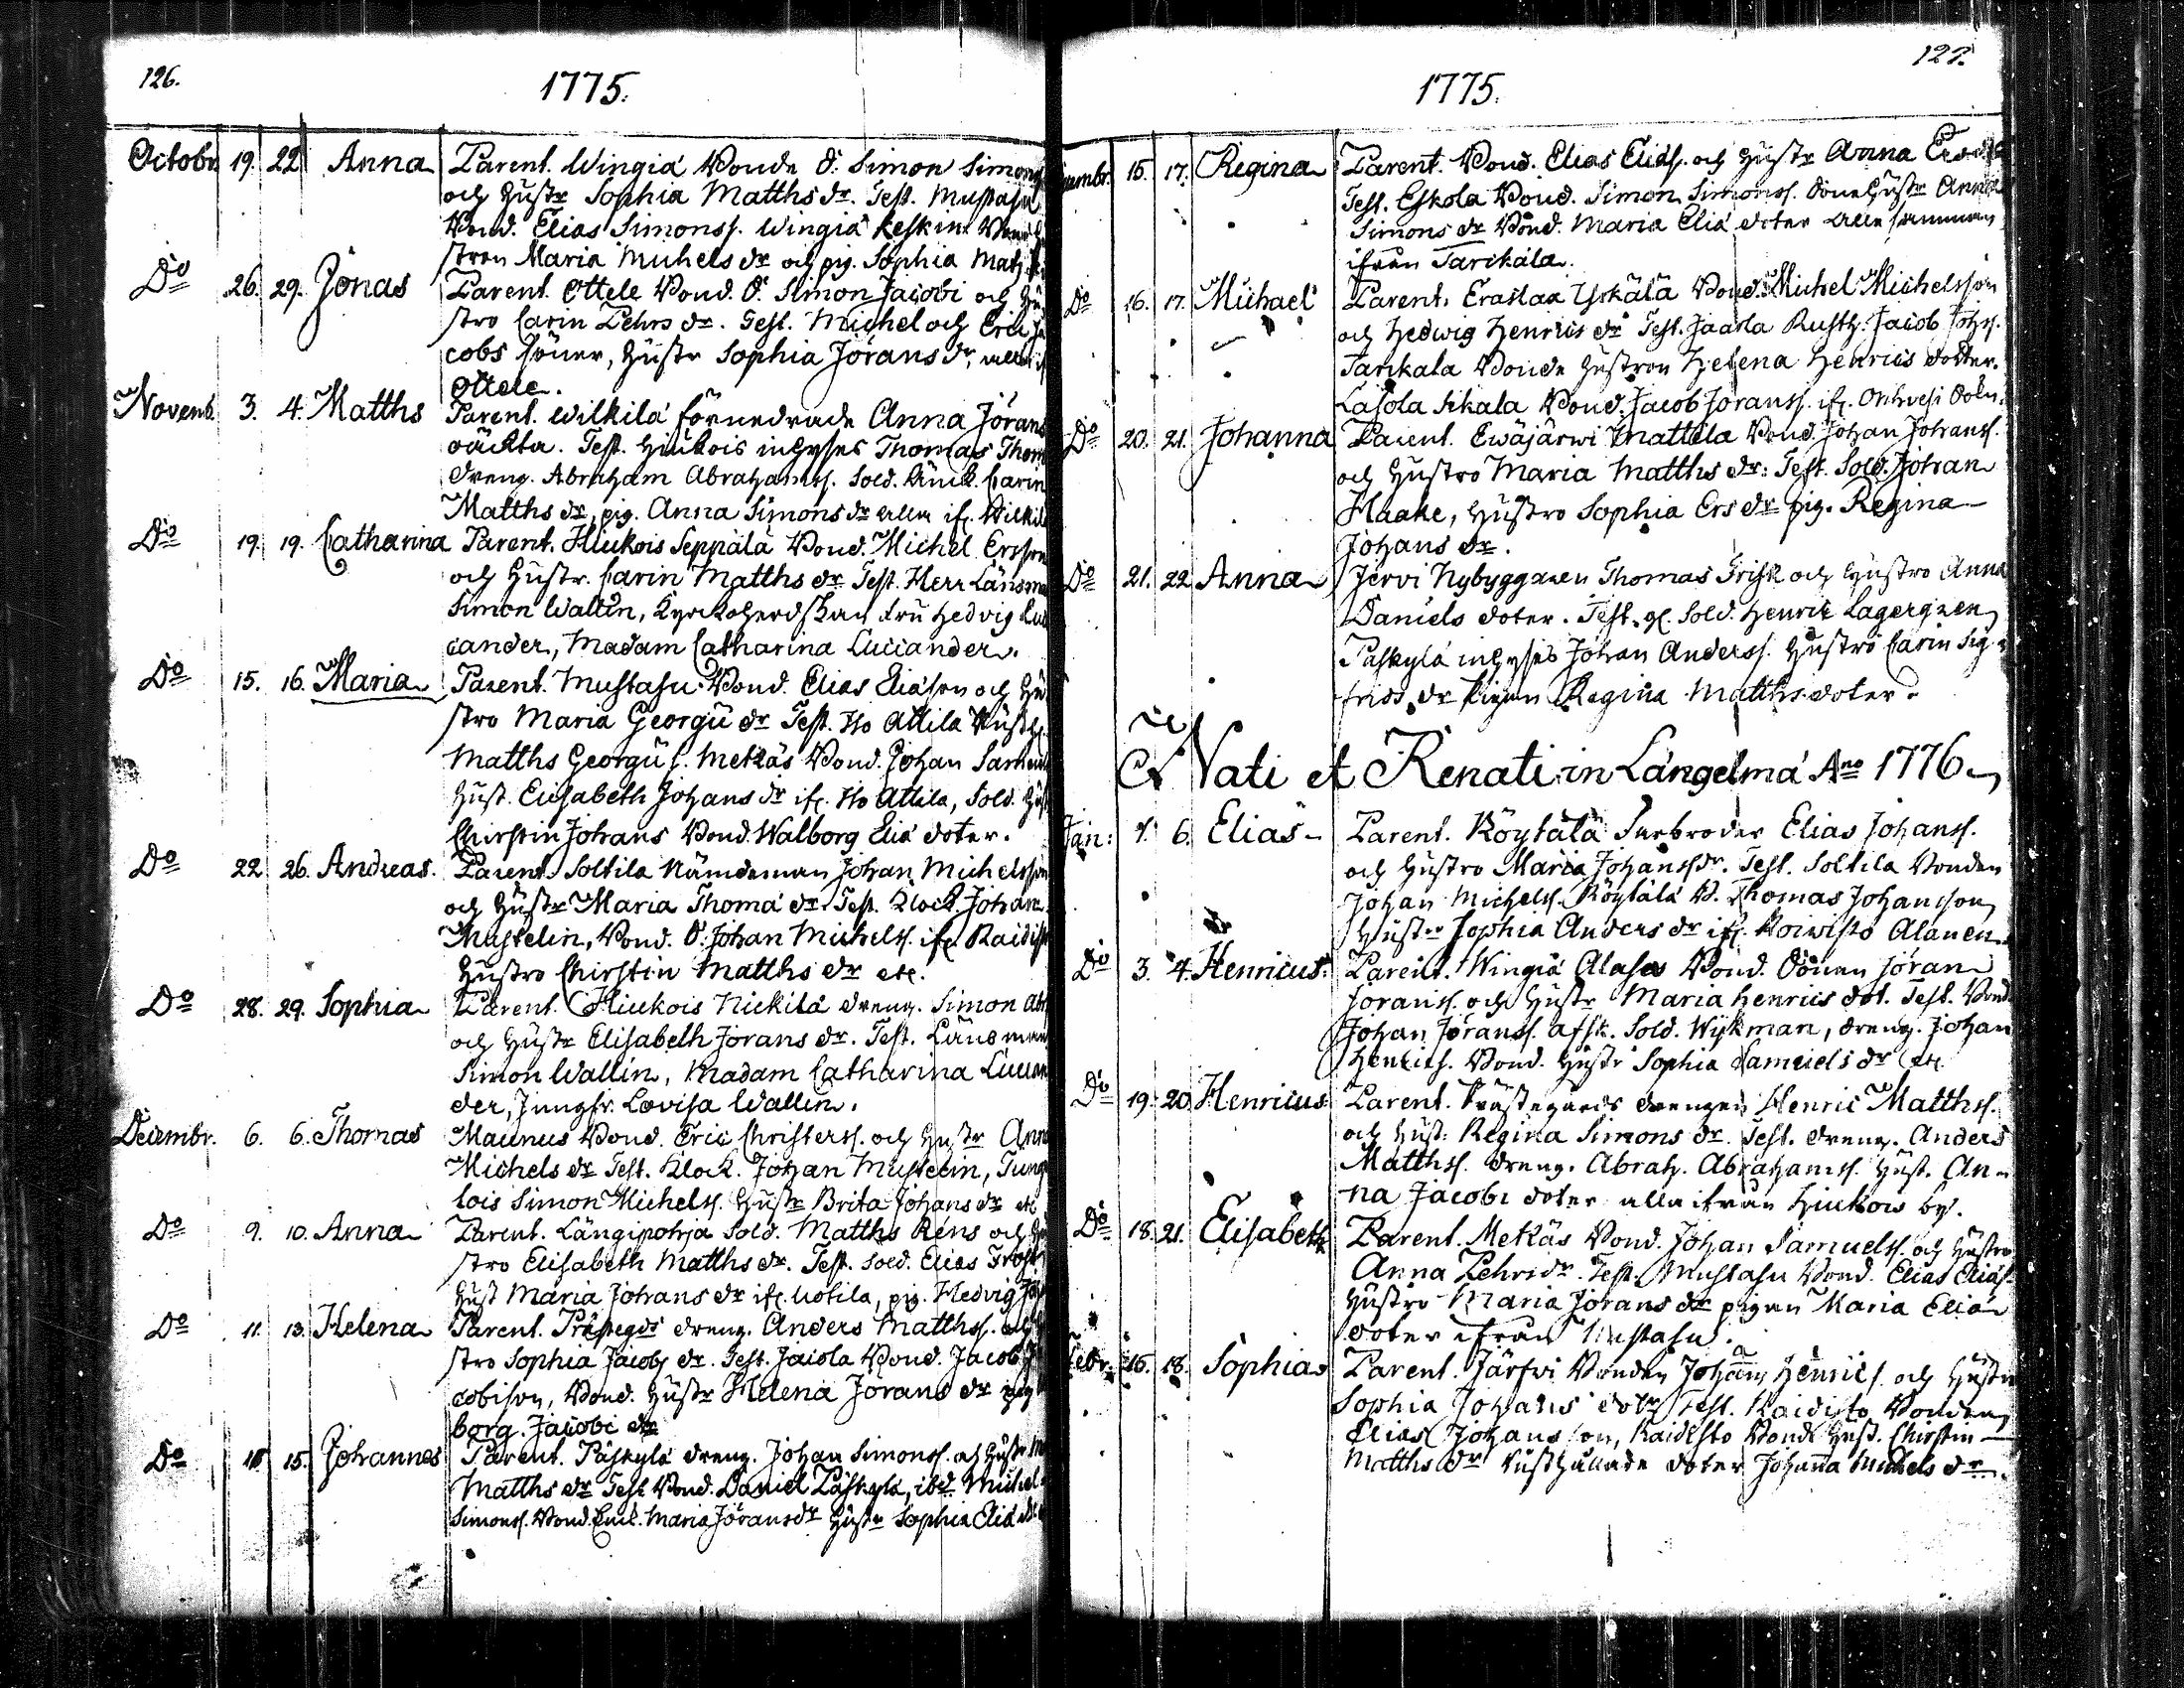 126.
1775.
Octobr. 19. 22 Anna Parent. Wingiä Bonde S: Simon Simons
och Hustr Sophia Matths dr. Test. Mustasu
Bond. Elias Simonss. Wingiä keskine Bond
stron Maria Michels dr och pig. Sophia Math
Do 26. 29. Jonas Parent. Ottele Bond. S. Simon Jacobi och Hu
stro Carin Pehrs dr. Test. Michel och Eric Ja
cobs söner, Hustr Sophia Jörans dr, alla if
Ottele.
Novemb. 3. 4. Matths Parent. Wilkilä förnedrade Anna Jörans
oäckta. Test. Hiukois inhyses Thomas Thom
dreng. Abraham Abrahamss. Sold. Änck. Carin
Matths dr, pig. Anna Simons dr alla if. Wilkilä
Do 19. 19. Catharina Parent. Hiukois Seppälä Bond. Michel Ersson
och Hustr. Carin Matths dr Test. Herr Länsma
Simon Wallin, Kyrkoherdskan Fru Hedvig Luc
iander, Madam Catharina Luciander.
Do 15. 16. Maria Parent. Mustasu Bond. Elias Eliason och Hu
stro Maria Georgii dr Test. Ho Attila Rusth.
Matths Georgii s. Metkäs Bond. Johan Samu
Hust. Elisabeth Johans dr if. Ho Attila, Sold. Hust
Chirstin Johans Bond. Walborg Eliä doter.
Do 22 26. Andreas. Parent. Soltila Nämdeman Johan Michelsson
och Hustr Maria Thomä dr. Test. Klock. Johan
Mustelin, Bond. S. Johan Michelss. ifr Raidist
Hustro Chirstin Matths dr etc.
Do 28. 29. Sophia Parent. Hiukois Nickilä dreng. Simon Abr
och Hustr Elisabeth Jörans dr. Test. Länsman
Simon Wallin, Madam Catharina Lucian
der, Jungfr. Lovisa Wallin.
Decembr. 6. 6. Thomas Maunus Bond. Eric Christerss. och Hustr Anna
Michels dr Test. Klock. Johan Mustelin, Tunge
lois Simon Michelss. Hustr Brita Johans dr etc
Do 9. 10. Anna Parent. Längipohja Sold. Matths Rens och Hu
stro Elisabeth Matths dr. Test. Sold. Elias Frost
Hust Maria Johans dr if. Uotila, pig. Hedvig Joh
Do 11. 13. Helena Parent. Prästegds dreng. Anders Matthss. och
stro Sophia Jacobs dr. Test. Jaiola Bond. Jacob J
cobison, Bond. Hustr Helena Jörans dr pig
borg. Jacobi dr
Do 15. Johannes Parent. Päskylä dreng. Johan Simonss. och Hustr M
Matths dr Test Bond. Daniel Päskylä, ibd. Michel
Simonss. Bond. Enk. Maria Jörans dr Hustr Sophia Eliä
127.
1775.
embr. 15. 17. Regina Parent. Bond. Elias Eliäs. och Hustr Anna Ers
Test. Eskola Bond. Simon Simonss. Hustr Anna
Simons dr Bond. Maria Eliä doter alla samman
ifrån Tarikala.
Do 16. 17. Michael Parent. Eraslax Yskälä Bond. Michel Michelsson
och Hedwig Henrics dr Test. Jaarla Rusth. Jacob Johss.
Tarikala Bonde Hustron Helena Henrics dotter.
Lasola Bond. Jacob Joranss. if. Orihvesi Sokn.
Do 20. 21. Johanna Parent. Ewäjärwi Mattila Bond. Johan Johanss.
och Hustro Maria Matths dr: Test. Sold. Johan
Haake, Hustro Sophia Ers dr pig. Regina
Johans dr.
Do 21. 22 Anna Jervi Nybyggaren Thomas Frisk och Hustro Anna
Daniels doter. Test. gl. Sold. Henric Lagergren
Päskylä inhyses Johan Anderss. Hustro Carin Sig
friss. dr Pigan Regina Matths doter.
Nati et Renati in Längelmä Ano 1776.
Jan: 1. 6. Elias Parent. Röytälä Farbroder Elias Johanss.
och Hustro Maria Johanss dr. Test. Soltila Bonden
Johan Michelss. Röytälä B. Thomas Johanson
Hustr Sophia Anders dr if. Koiwisto Alanen.
Do 3. 4. Henricus. Parent. Wingiä Alasa Bond. Sonen Jöran
Joranss. och Hustr Maria Henrics dot. Test. Bond
Johan Joranss. Afsk. Sold. Wykman, dreng. Johan
Henrics. Bond. Hustr Sophia Samuels dr etc.
Do 19. 20 Henricus. Parent. Prästegårds drengen Henric Matthss.
och Hust: Regina Simons dr. Test. dreng. Anders
Matthss. dreng. Abrah. Abrahamss. Hust. An-
na Jacobi doter alla ifrån Hiukois by.
Do 18. 21. Elisabeth Parent. Metkäs Bond. Johan Samuelss. och Hustro
Anna Pehrs dr. Test. Mustasu Bond. Elias Elias.
Hustro Maria Jörans dr pigan Maria Eliä
doter ifrån Mustasu.
Febr. 16. 18. Sophia Parent. Järfwi Bonden Johan Henrics. och Hustro
Sophia Johans dotr Test. Raidisto Bonden
Elias Johanson, Raidisto Bond Hust. Chirstin
Matths dr Rusthållare doter Johanna Michels dr.